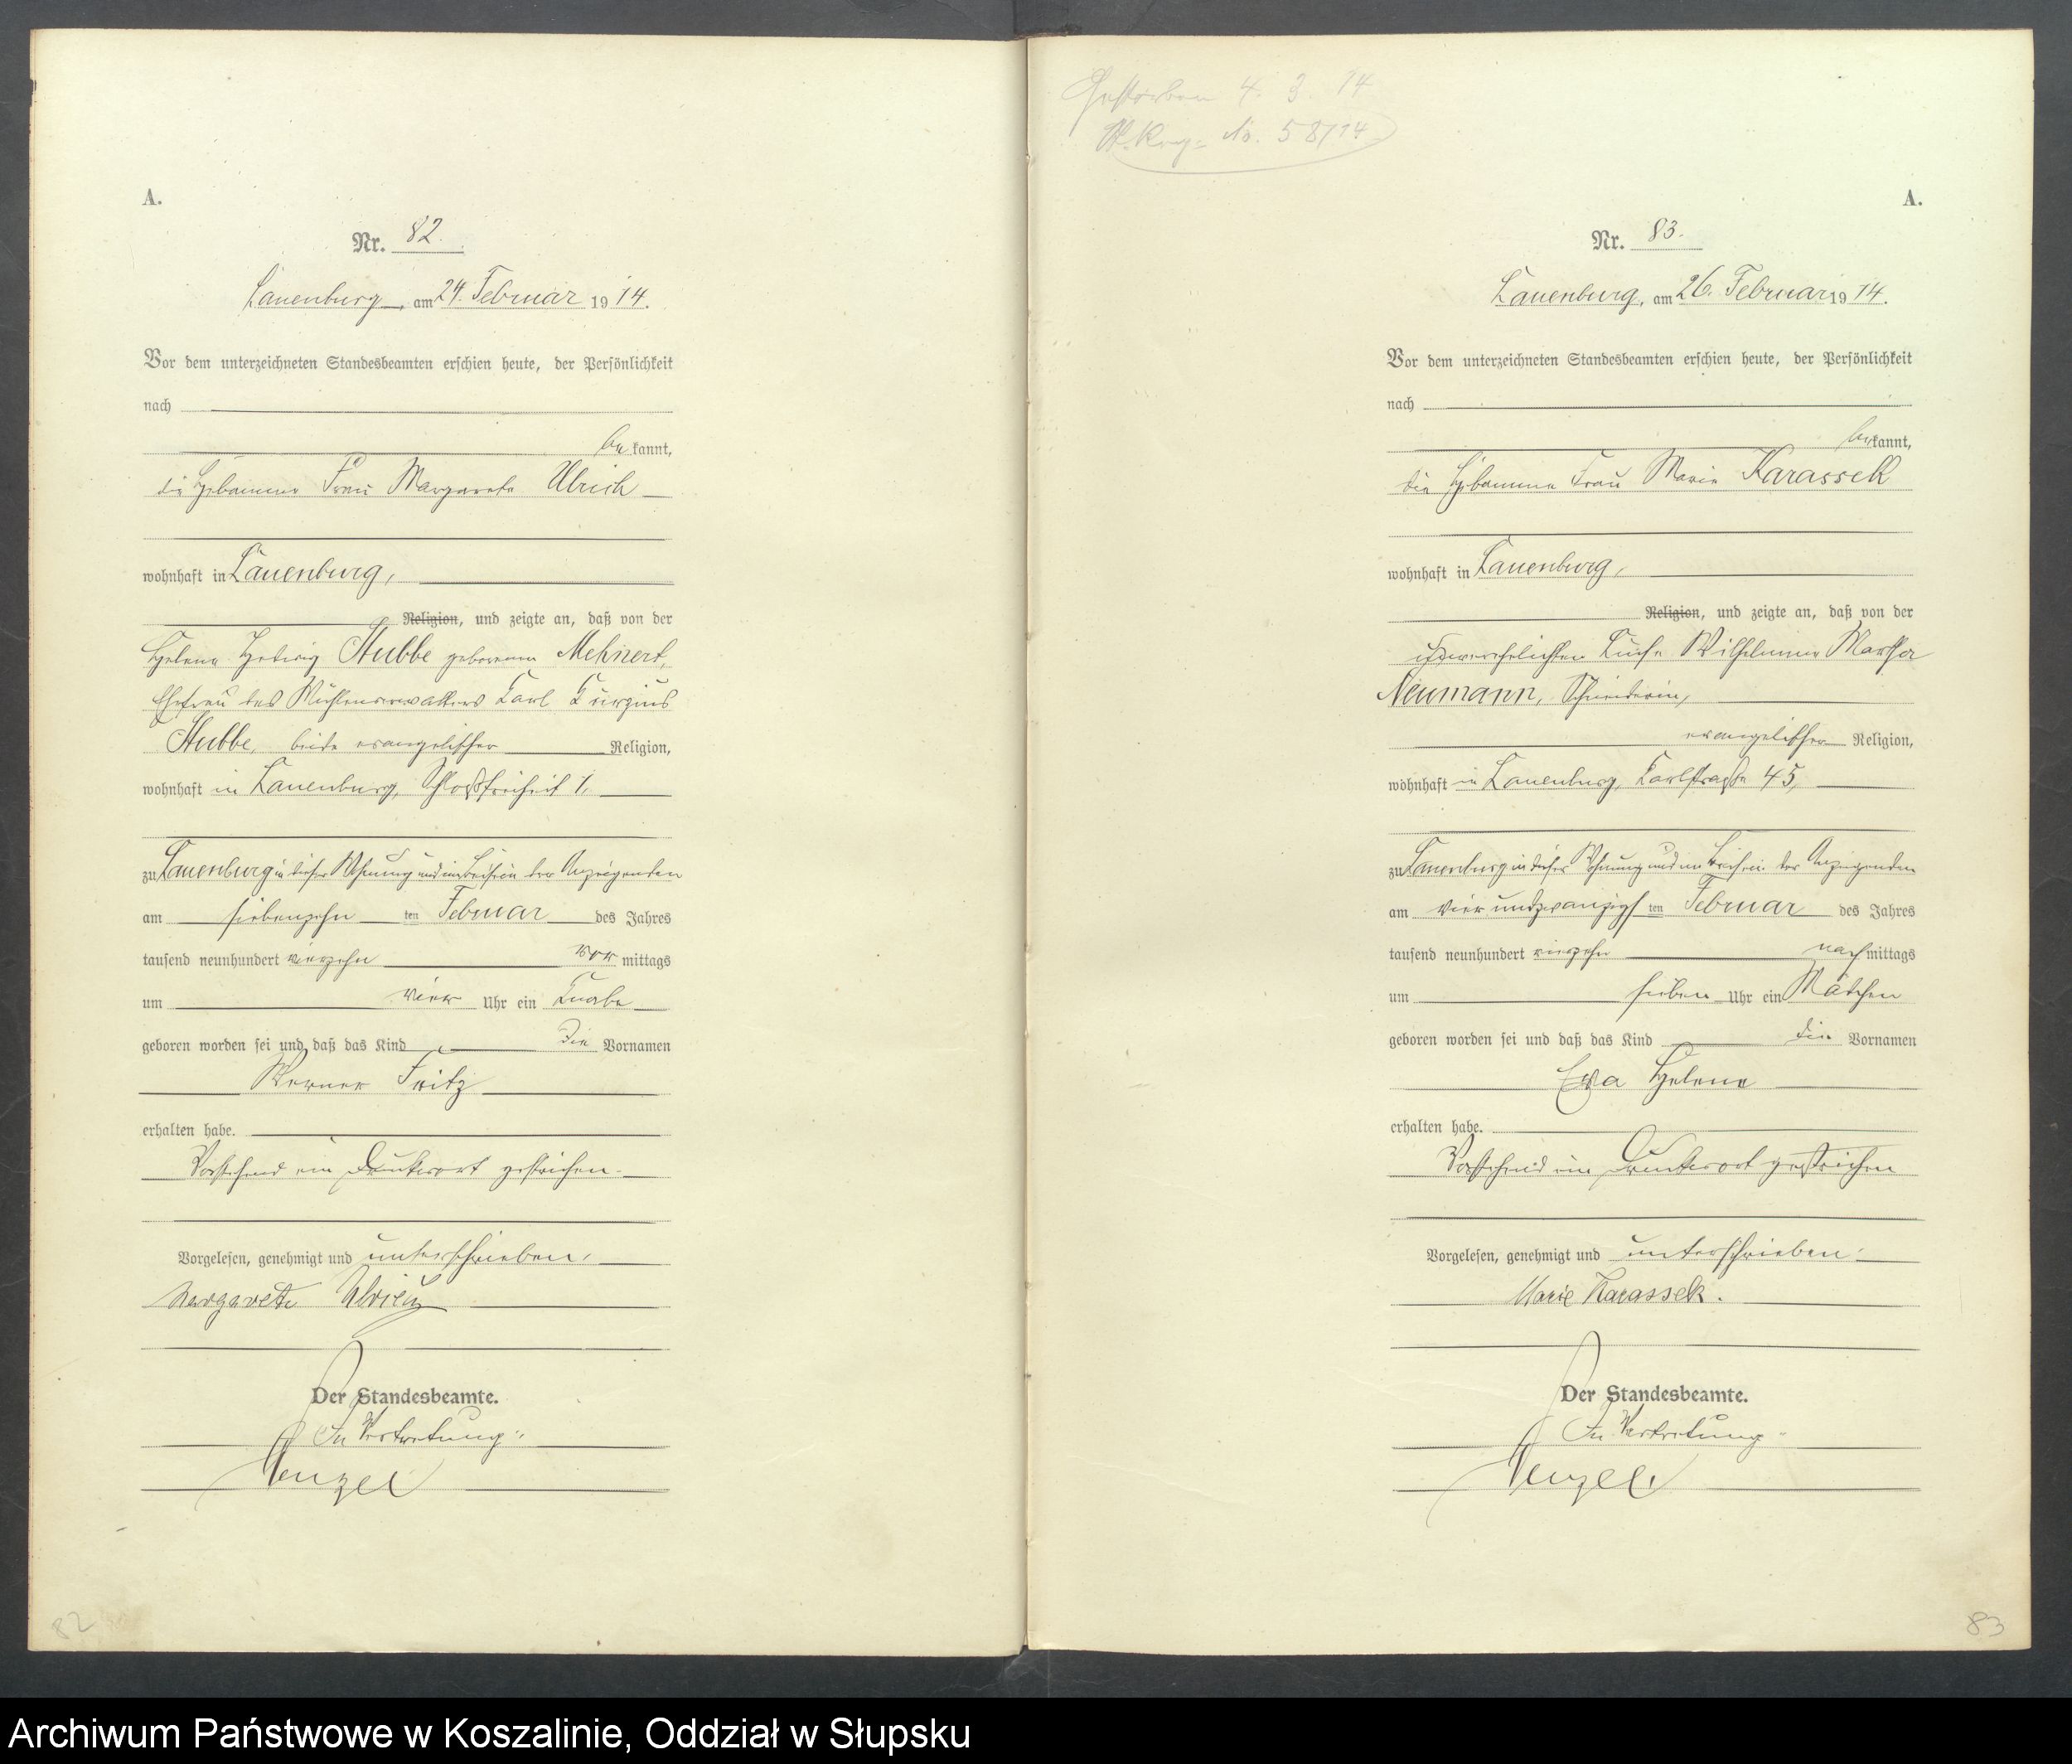 A.
Nr. 82.
Lauenburg, am 24. Februar 1914.
Vor dem unterzeichneten Standesbeamten erschien heute, der Persönlichkeit
nach
be kannt,
die Hebamme Frau Margarete Ulrich
wohnhaft in Lauenburg,
Religion, und zeigte an, daß von der
Helene Hedwig Stubbe geborenen Mehnert,
Ehefrau des Mühlenverwalters Karl
Stubbe, beide evangelischer Religion,
wohnhaft in Lauenburg, Schloßfreiheit 1,
zu Lauenburg in dieser Wohnung und im Beisein der Anzeigenden
am siebenzehn ten Februar des Jahres
tausend neunhundert vierzehn vor mittags
um vier Uhr ein Knabe
geboren worden sei und daß das Kind die Vornamen
Werner Fritz
erhalten habe.
Vorstehend ein Druckwort gestrichen.
Vorgelesen, genehmigt und unterschrieben.
Margarete Ulrich
Der Standesbeamte.
In Vertretung:
Wenzel
82
Gestorben 4. 3. 14
St. Reg. No. 58/14
A.
Nr. 83.
Lauenburg, am 26. Februar 1914.
Vor dem unterzeichneten Standesbeamten erschien heute, der Persönlichkeit
nach
be kannt,
die Hebamme Frau Marie Karassek
wohnhaft in Lauenburg,
Religion, und zeigte an, daß von der
unverehelichten Luise Wilhelmine Martha
Neumann, Schneiderin,
evangelischer Religion,
wohnhaft in Lauenburg, Karlstraße 45,
zu Lauenburg in dieser Wohnung und im Beisein der Anzeigenden
am vier und zwanzigs ten Februar des Jahres
tausend neunhundert vierzehn nach mittags
um sieben Uhr ein Mädchen
geboren worden sei und daß das Kind die Vornamen
Eva Helene
erhalten habe.
Vorstehend ein Druckwort gestrichen
Vorgelesen, genehmigt und unterschrieben.
Marie Karassek.
Der Standesbeamte.
In Vertretung:
Wenzel
83
Archiwum Państwowe w Koszalinie, Oddział w Słupsku